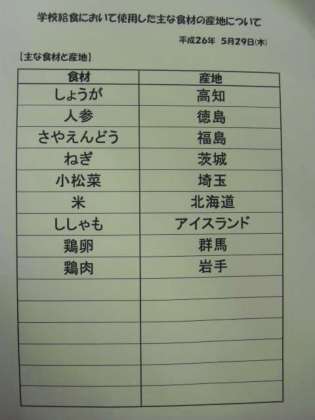 学校給食において使用した主な食材の産地について
平成26年 5月29日(木)
【主な食材と産地】
食材 産地
しょうが 高知
人参 徳島
さやえんどう 福島
ねぎ 茨城
小松菜 埼玉
米 北海道
ししゃも アイスランド
鶏卵 群馬
鶏肉 岩手